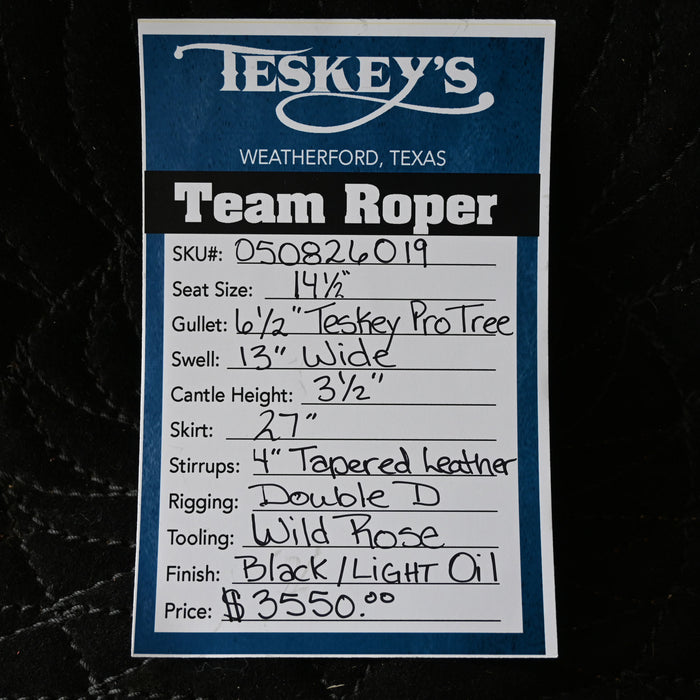 TESKEY'S
WEATHERFORD, TEXAS
Team Roper
SKU#: 050826019
Seat Size: 14½"
Gullet: 6½" Teskey Pro Tree
Swell: 13" Wide
Cantle Height: 3½"
Skirt: 27"
Stirrups: 4" Tapered Leather
Rigging: Double D
Tooling: Wild Rose
Finish: Black/LIGHT Oil
Price: $3550.00